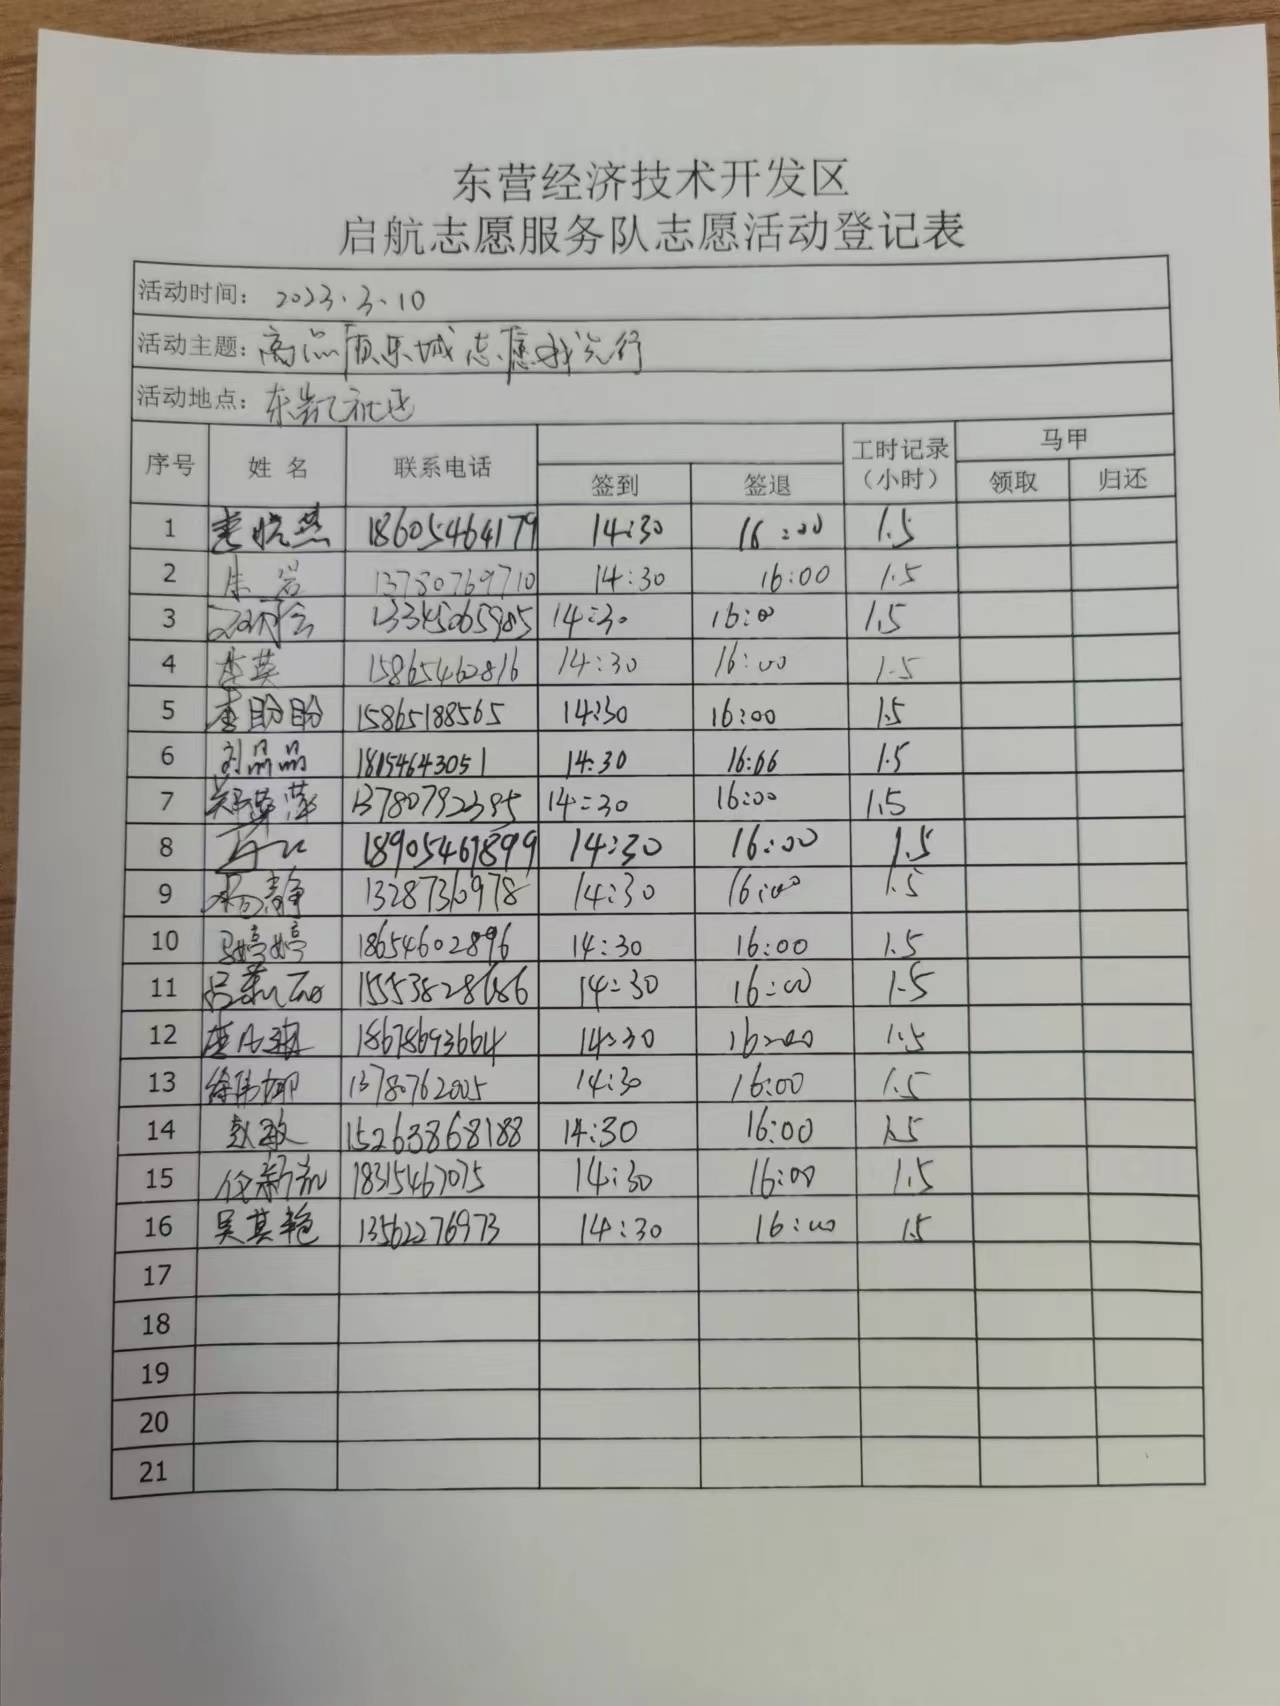 东营经济技术开发区
启航志愿服务队志愿活动登记表
活动时间： 2023.3.10
活动主题：高品质乐城志愿我先行
活动地点：东凯社区
序号 姓名 联系电话 工时记录（小时） 马甲
签到 签退 领取 归还
1 晓燕 18605464179 14:30 16:00 1.5
2 朱岩 13780769710 14:30 16:00 1.5
3 13345065985 14:30 16:00 1.5
4 李英 15865462816 14:30 16:00 1.5
5 李盼盼 15865188565 14:30 16:00 1.5
6 刘晶晶 18154643051 14:30 16:00 1.5
7 郑英萍 13780792395 14:30 16:00 1.5
8 18905461899 14:30 16:00 1.5
9 杨静 13287360978 14:30 16:00 1.5
10 马婷婷 18654602896 14:30 16:00 1.5
11 吕 15553828686 14:30 16:00 1.5
12 18678693664 14:30 16:00 1.5
13 徐伟娜 13780762005 14:30 16:00 1.5
14 赵敏 15263868188 14:30 16:00 1.5
15 任新 18315467075 14:30 16:00 1.5
16 吴其艳 13562276973 14:30 16:00 1.5
17
18
19
20
21